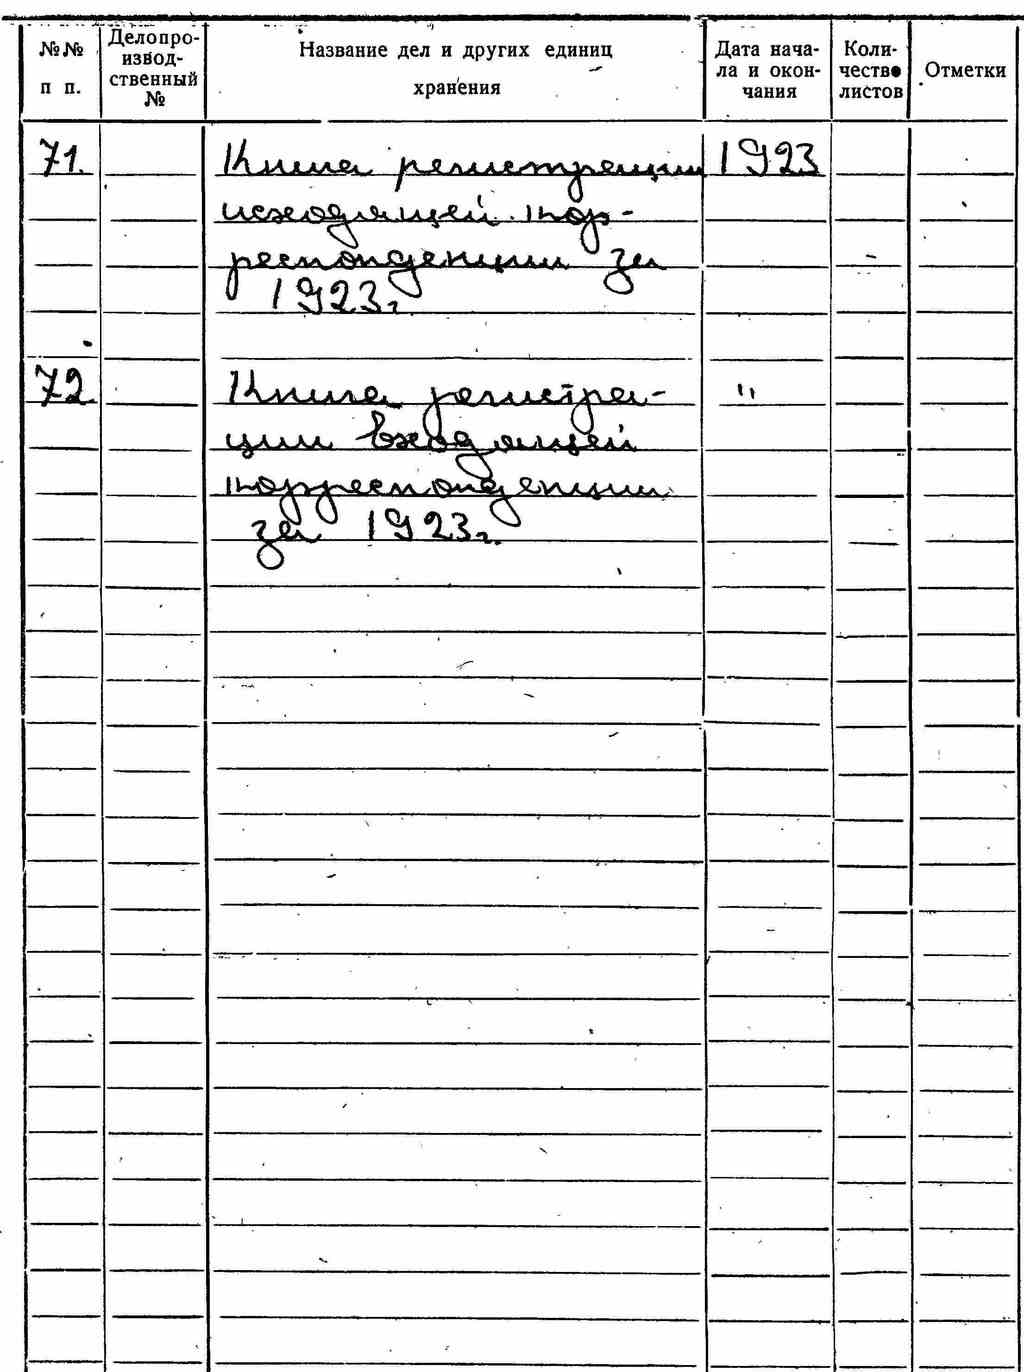 №№ п п.
Делопро-
извод-
ственный
№
Название дел и других единиц
хранения
Дата нача-
ла и окон-
чания
Коли-
чество
листов
Отметки
71. Книга регистрации 1923
исходящей кор-
респонденции за
1923г.
72. Книга регистра- "
ции входящей
корреспонденции
за 1923г.